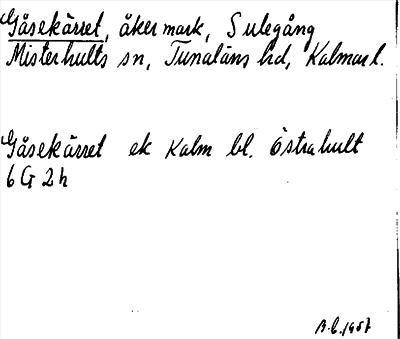 Gåsekärret, åkermark, Sulegång
Misterhults sn, Tunaläns hd, Kalmar l.
Gåsekärret ek Kalm bl. Östrahult
6 G 2 h
B.C. 1957